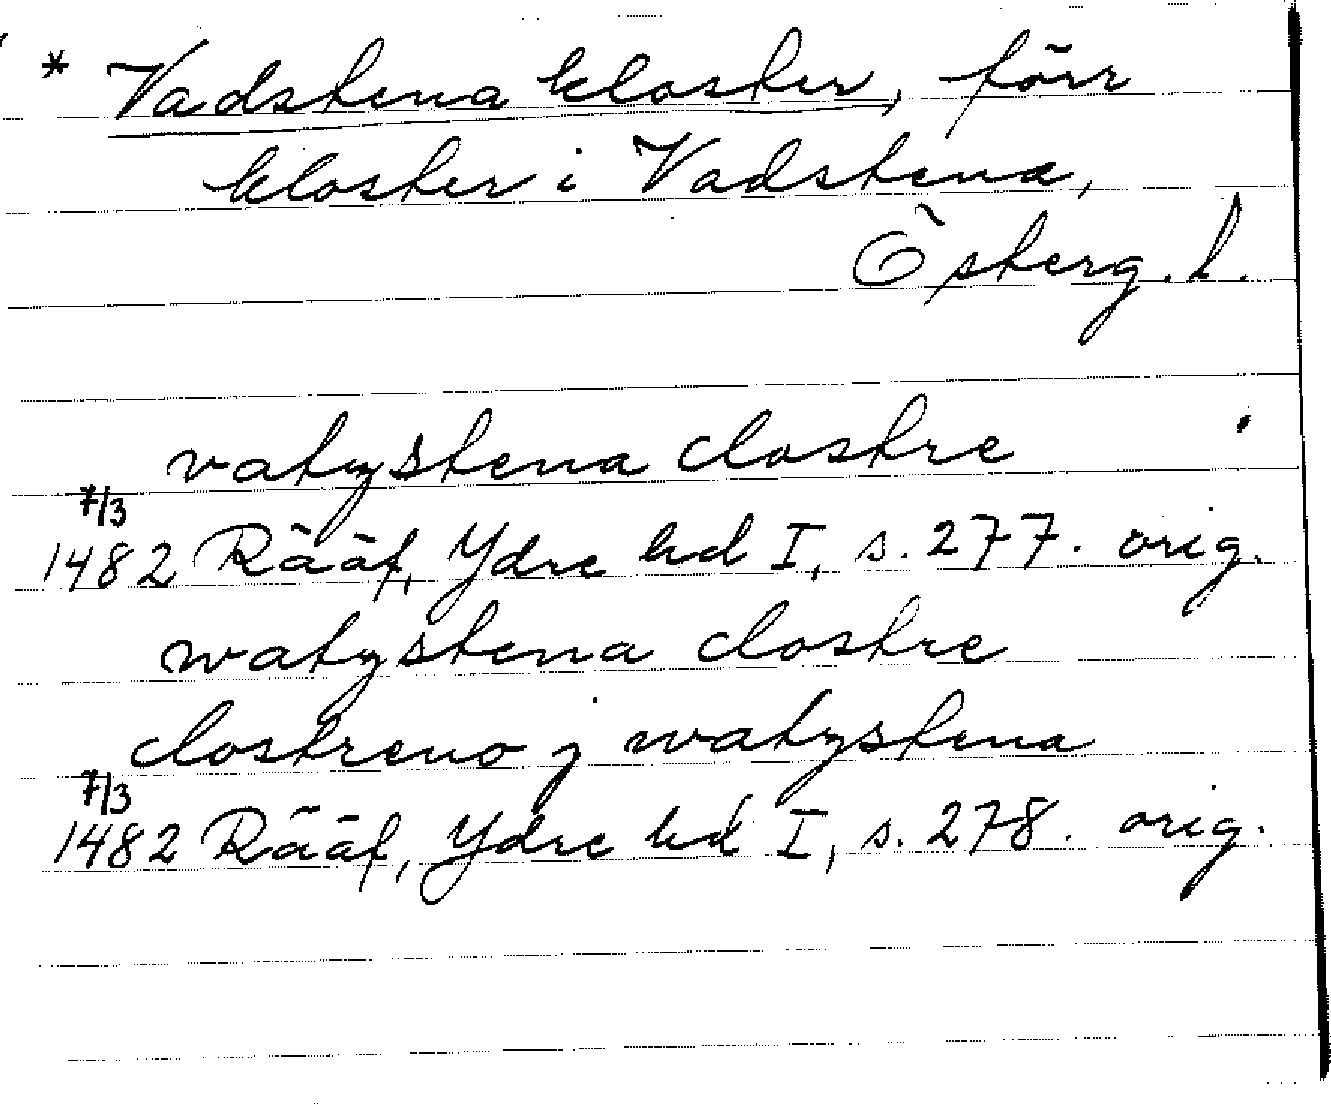 * Vadstena kloster, förr
kloster i Vadstena,
Österg. l.
vatzstena clostre
7/3
1482 Rääf, Ydre hd I, s. 277. orig.
watzstena clostre
clostreno j watzstena
7/3
1482 Rääf, Ydre hd I, s. 278. orig.